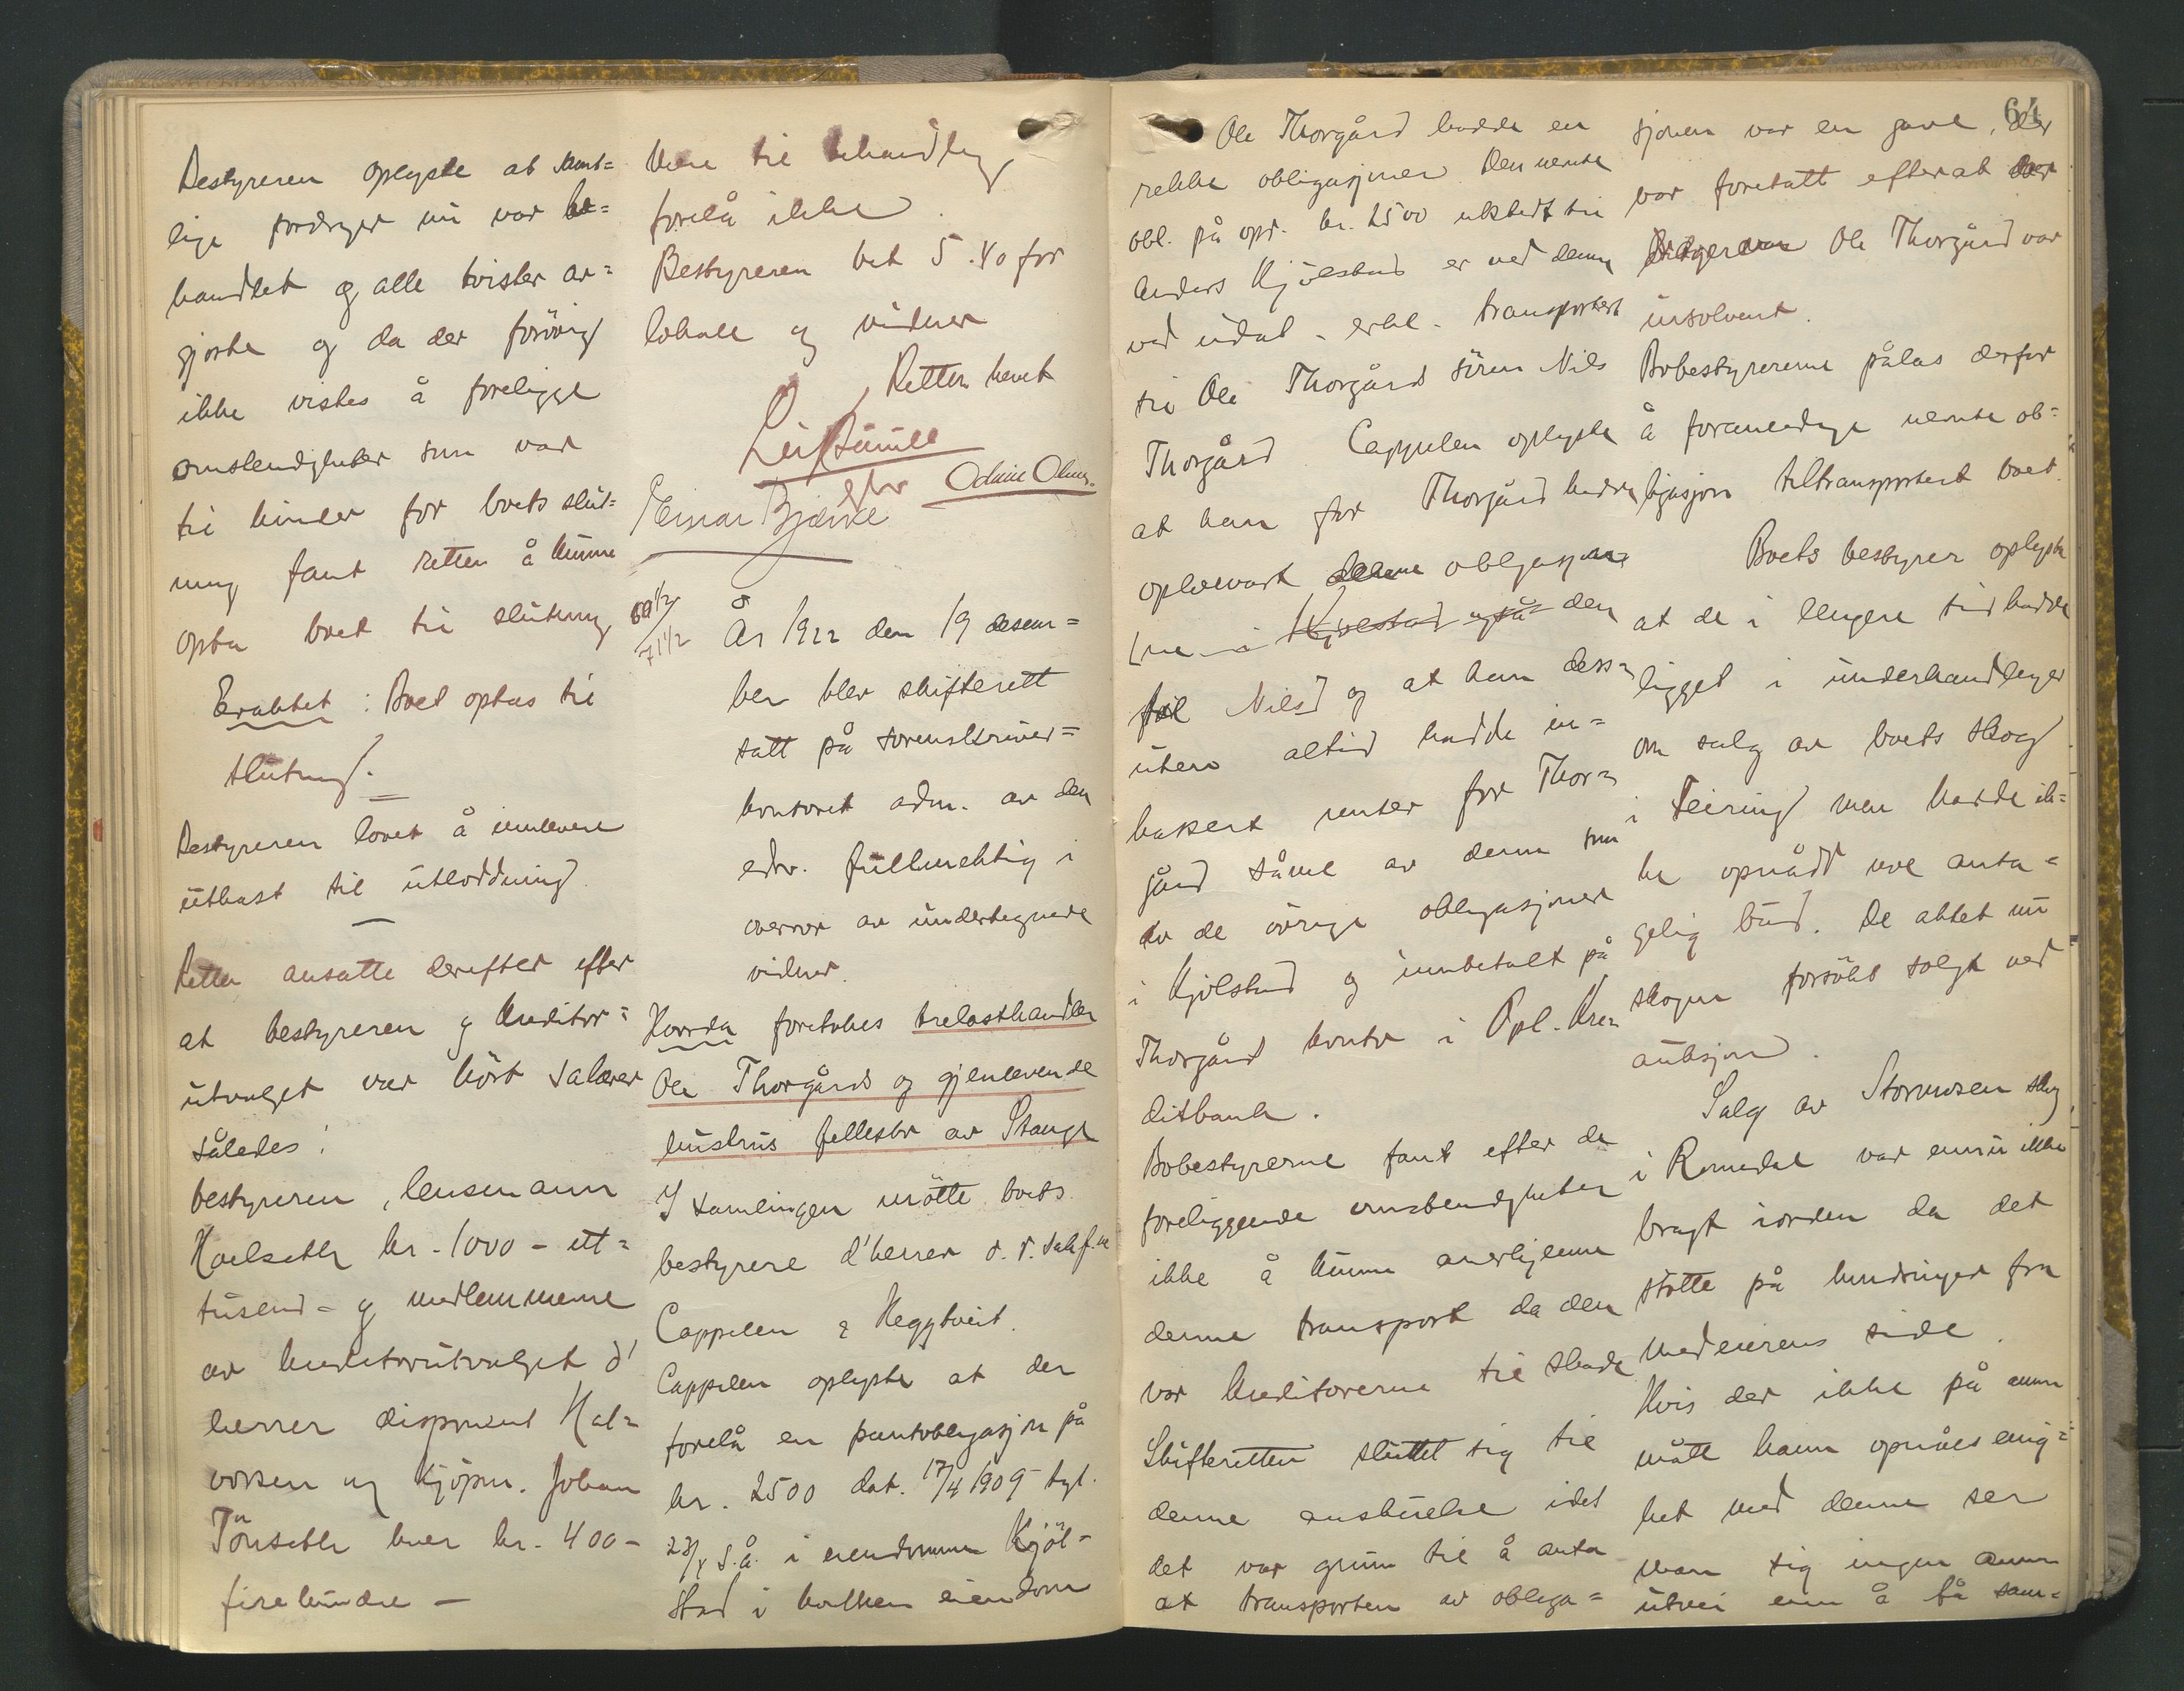 Bestyreren oplyste at samt=
lige fordringer nu var be=
handlet og alle tvister av=
gjorte og da der forövrig
ikke vistes å foreligge
omstendigheter som var
til hinder for boets slut=
ning fant retten å kunne
opta boet til slutning
Erakttet: Boet optas til
slutning.
Bestyreren lovet å innlevere
utkast til utloddning.
Retten ansatte derefter efter
at bestyreren og kreditor=
utvalget var hört salærer
således:
bestyreren, lensmann
Hoelseth kr. 1000 - ett=
tusend - og medlemmene
av kreditorutvalget d'
herrer disponent Hal=
vorsen og kjöpm. Johan
Tönseth hver kr. 400 -
firehundre -
Mere til behandling
forelå ikke.
Bestyreren bet 5.40 for
lokale og vidner
Retten hevet
Einar Bjerke
Odmar Olsen
År 1922 den 19 desem=
ber blev skifterett
satt på sorenskriver=
kontoret adm. av den
edsv. fullmektig i
overvær av undertegnede
vidner.
Hvorda foretokes trelasthandler
Ole Thorgårds og gjenlevende
hustrus fellesbo av Stange
I samlingen mötte boets
bestyrere d'herrer o.r.sakf.e
Cappelen & Heggtveit.
Cappelen oplyste at der
forelå en pantobligasjon på
kr. 2500 dat. 17/4 1909 tgl.
23/ s.å. i eiendommen Kjöl=
stad i hvilken eiendom
64
Ole Thorgård hadde en
rekke obligasjoner. Den nevnte
obl. på opr. kr. 2500 utstedt til
Anders Kjölstad er ved denne
ved udat. erkl. transportert
til Ole Thorgårds sönn Nils
Thorgård. Cappelen oplyste
at han for Thorgård hadde
oplevert denne obligasjon
Kjölstad også den
til Nils og at han dess=
uten altid hadde in=
kassert renter for Thor=
gård såvel av denne som
av de övrige obligasjoner
i Kjölstad og innbetalt på
Thorgårds konto i Opl. Kre=
ditbank.
Bobestyrerne fant efter de
foreliggende omstendigheter
ikke å kunne anerkjenne
denne transport da den
var kreditorerne til skade
Skifteretten sluttet sig til
denne anskuelse idet
det var grunn til å anta
at transporten av obliga=
sjonen var en gave, der
var foretatt efterat der
Ole Thorgård var
insolvent.
Bobestyrerne pålas derfor
å foranledige nevnte ob=
ligasjon tiltransportert boet.
Boets bestyrer oplyste
at de i lengere tid hadde
ligget i underhandlinger
om salg av boets skog
i Feiring men hadde ik=
ke opnådd noe anta=
gelig bud. De aktet nu
skogen forsökt solgt ved
auksjon.
Salg av Stormosen skog
i Romedal var ennu ikke
bragt iorden da det
stötte på hindringer fra
medeierens side.
Hvis der ikke på annen
måtte kann opnåes enig=
het med denne ser
man sig ingen annen
utvei enn å få sam=